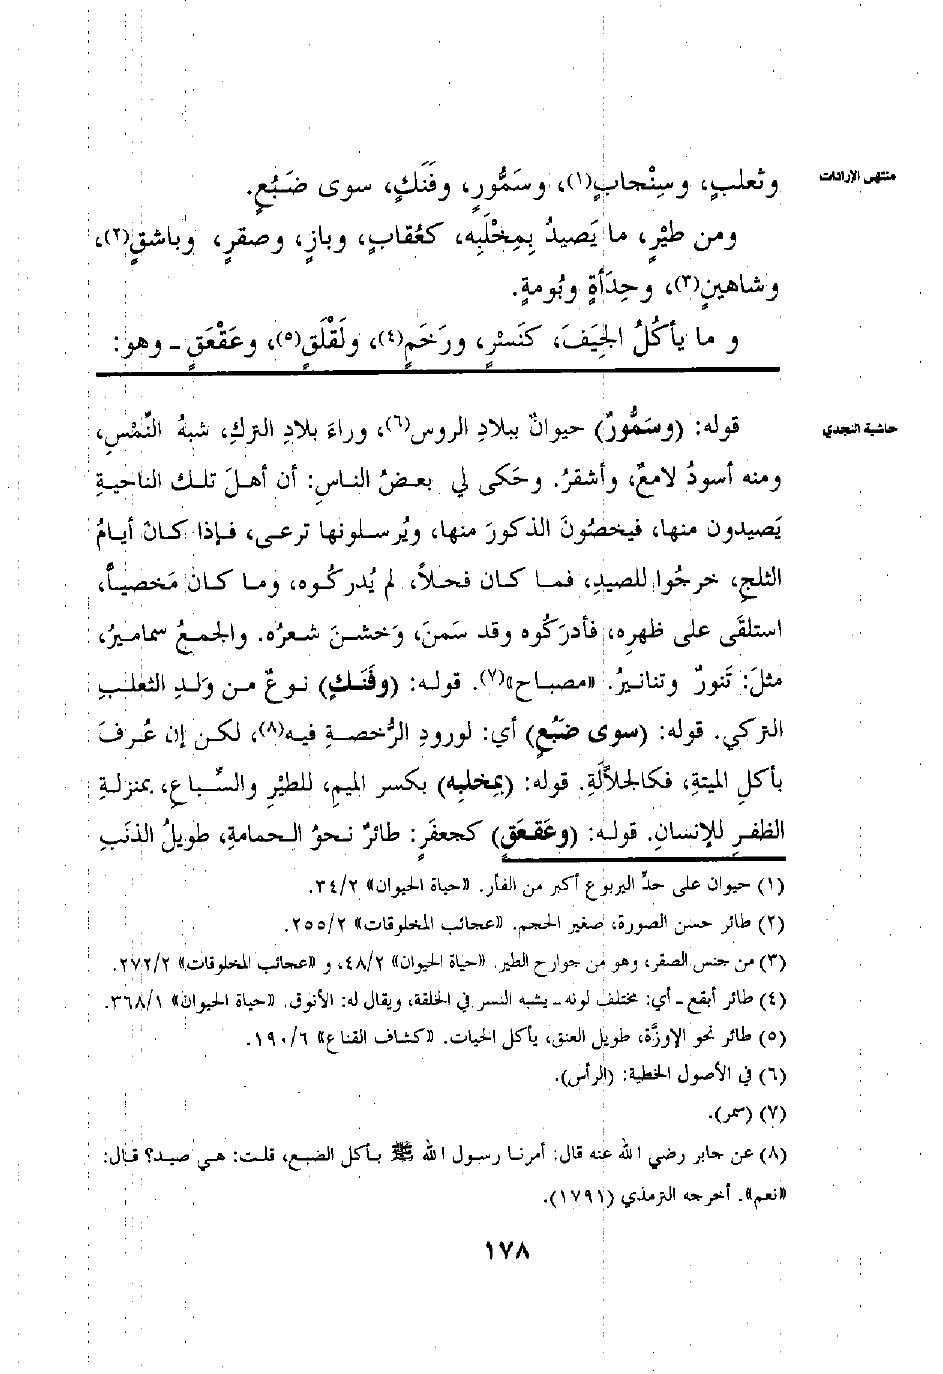 منتهى الإرادات
وثعلبٍ، وسِنْجابٍ(١)، وسَمُّورٍ، وفَنَكٍ، سوى ضَبُعٍ.
ومن طيْرٍ، ما يَصيدُ بِمِخْلَبِه، كعُقابٍ، وبازٍ، وصقرٍ، وباشقٍ(٢)،
وشاهينٍ(٣)، وحِدَأَةٍ وبُومةٍ.
و ما يأكُلُ الجِيَفَ، كنَسْرٍ، ورَخَمٍ(٤)، ولَقْلَقٍ(٥)، وعَقْعَقٍ ـ وهو:
حاشية النجدي
قوله: (وسَمُّورٌ) حيوانٌ ببلادِ الروس(٦)، وراءَ بلادِ التركِ، شبهُ النِّمْسِ،
ومنه أسودُ لامعٌ، وأشقرُ. وحَكى لي بعضُ الناسِ: أن أهلَ تلك الناحيةِ
يَصيدون منها، فيخصُونَ الذكورَ منها، ويُرسلونها ترعى، فإذا كان أيامُ
الثلجِ، خرجُوا للصيدِ، فما كان فحلاً، لم يُدركُوه، وما كان مَخصياً،
استلقَى على ظهرِه، فأدرَكُوه وقد سَمنَ، وَخشنَ شعرُه. والجمعُ سماميرُ،
مثلَ: تَنورٌ وتنانيرُ. «مصباح»(٧). قوله: (وفَنَكٍ) نوعٌ من وَلدِ الثعلبِ
التركي. قوله: (سوى ضَبُعٍ) أي: لورودِ الرُّخصةِ فيه(٨)، لكن إن عُرفَ
بأكلِ الميتةِ، فكالجلاَّلَةِ. قوله: (بمِخلبِه) بكسر الميم، للطيْرِ والسِّباعِ، بمنزلةِ
الظفرِ للإنسانِ. قوله: (وعَقعَقٍ) كجعفَرٍ: طائرٌ نحوُ الحمامةِ، طويلُ الذنَبِ
(١) حيوان على حدِّ اليربوع أكبر من الفأر. «حياة الحيوان» ٣٤/٢.
(٢) طائر حسن الصورة، صغير الحجم. «عجائب المخلوقات» ٢٥٥/٢.
(٣) من جنس الصقر، وهو من جوارح الطير. «حياة الحيوان» ٤٨/٢، و «عجائب المخلوقات» ٢٧٢/٢.
(٤) طائر أبقع ـ أي: مختلف لونه ـ يشبه النسر في الخلقة، ويقال له: الأنوق. «حياة الحيوان» ٣٦٨/١.
(٥) طائر نحو الإوزَّة، طويل العنق، يأكل الحيات. «كشاف القناع» ١٩٠/٦.
(٦) في الأصول الخطية: (الرأس).
(٧) (سمر).
(٨) عن جابر رضي الله عنه قال: أمرنا رسول الله ﷺ بأكل الضبع، قلت: هي صيد؟ قال:
«نعم». أخرجه الترمذي (١٧٩١).
١٧٨